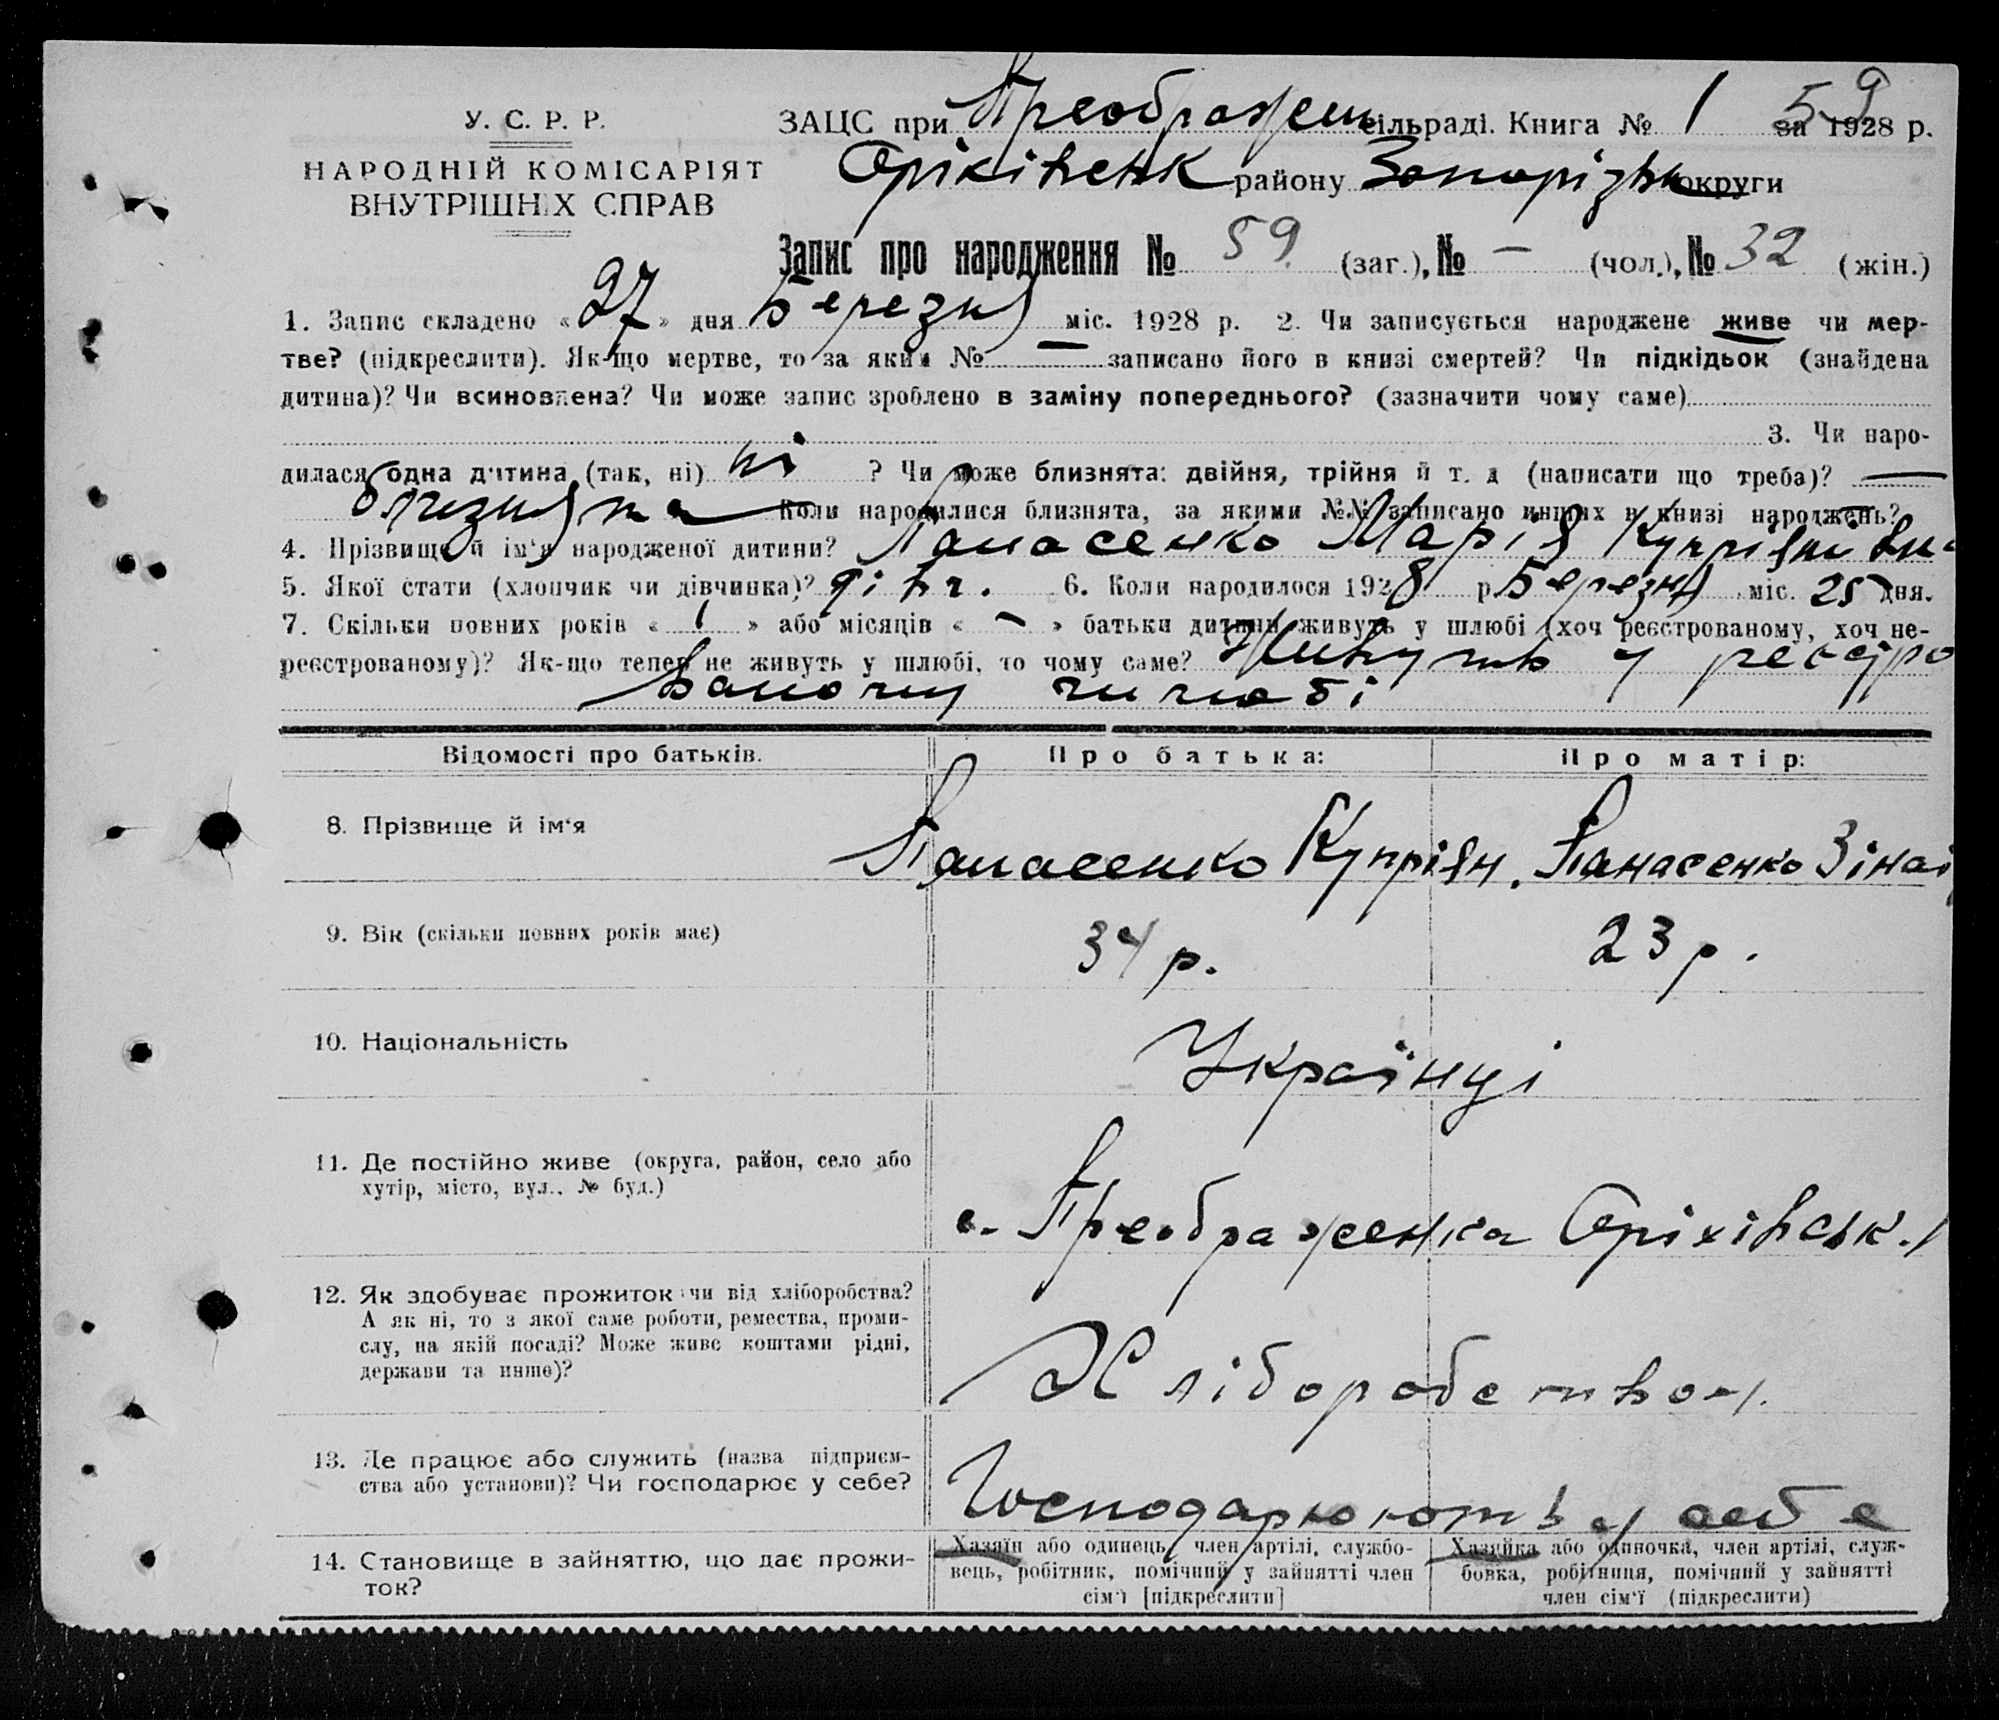 У. С. Р. Р.
НАРОДНІЙ КОМІСАРІЯТ
ВНУТРІШНІХ СПРАВ
ЗАЦС при Преображен сільраді. Книга № 1 59 за 1928 р.
Оріхівськ району Запорізьк округи
Запис про народження № 59 (заг.), № — (чол.), № 32 (жін.)
1. Запис складено «27» дня Березня міс. 1928 р. 2. Чи записується народжене живе чи мер-
тве? (підкреслити). Як-що мертве, то за яким № — записано його в книзі смертей? Чи підкідьок (знайдена
дитина)? Чи всиновлена? Чи може запис зроблено в заміну попереднього? (зазначити чому саме)
3. Чи наро-
дилася одна дитина (так, ні) ні ? Чи може близнята: двійня, трійня й т. д (написати що треба)? —
близнята Коли народилися близнята, за якими №№ записано инших в книзі народжень? —
4. Прізвище й ім'я народженої дитини? Панасенко Марія Купріянівн-
5. Якої стати (хлопчик чи дівчинка)? дівч. 6. Коли народилося 1928 р. Березня міс. 25 дня.
7. Скільки повних років « 1 » або місяців « — » батьки дитини живуть у шлюбі (хоч реєстрованому, хоч не-
реєстрованому)? Як-що тепер не живуть у шлюбі, то чому саме? Живуть у реєстро
ваному шлюбі
Відомості про батьків. Про батька: Про матір:
8. Прізвище й ім'я Панасенко Купріян. Панасенко Зінаї
9. Вік (скільки повних років має) 34 р. 23 р.
10. Національність Українці
11. Де постійно живе (округа, район, село або
хутір, місто, вул., № буд.)
с. Преображенка Оріхівськ.
12. Як здобуває прожиток чи від хліборобства?
А як ні, то з якої саме роботи, ремества, проми-
слу, на якій посаді? Може живе коштами рідні,
держави та инше)?
Хліборобством.
13. Де працює або служить (назва підприєм-
ства або установи)? Чи господарює у себе?
Господарюють у себе
14. Становище в зайняттю, що дає прожи-
ток?
Хазяїн або одинець, член артілі, службо-
вець, робітник, помічний у зайнятті член
сім'ї [підкреслити]
Хазяйка або одиночка, член артілі, служ-
бовка, робітниця, помічний у зайнятті
член сім'ї (підкреслити)